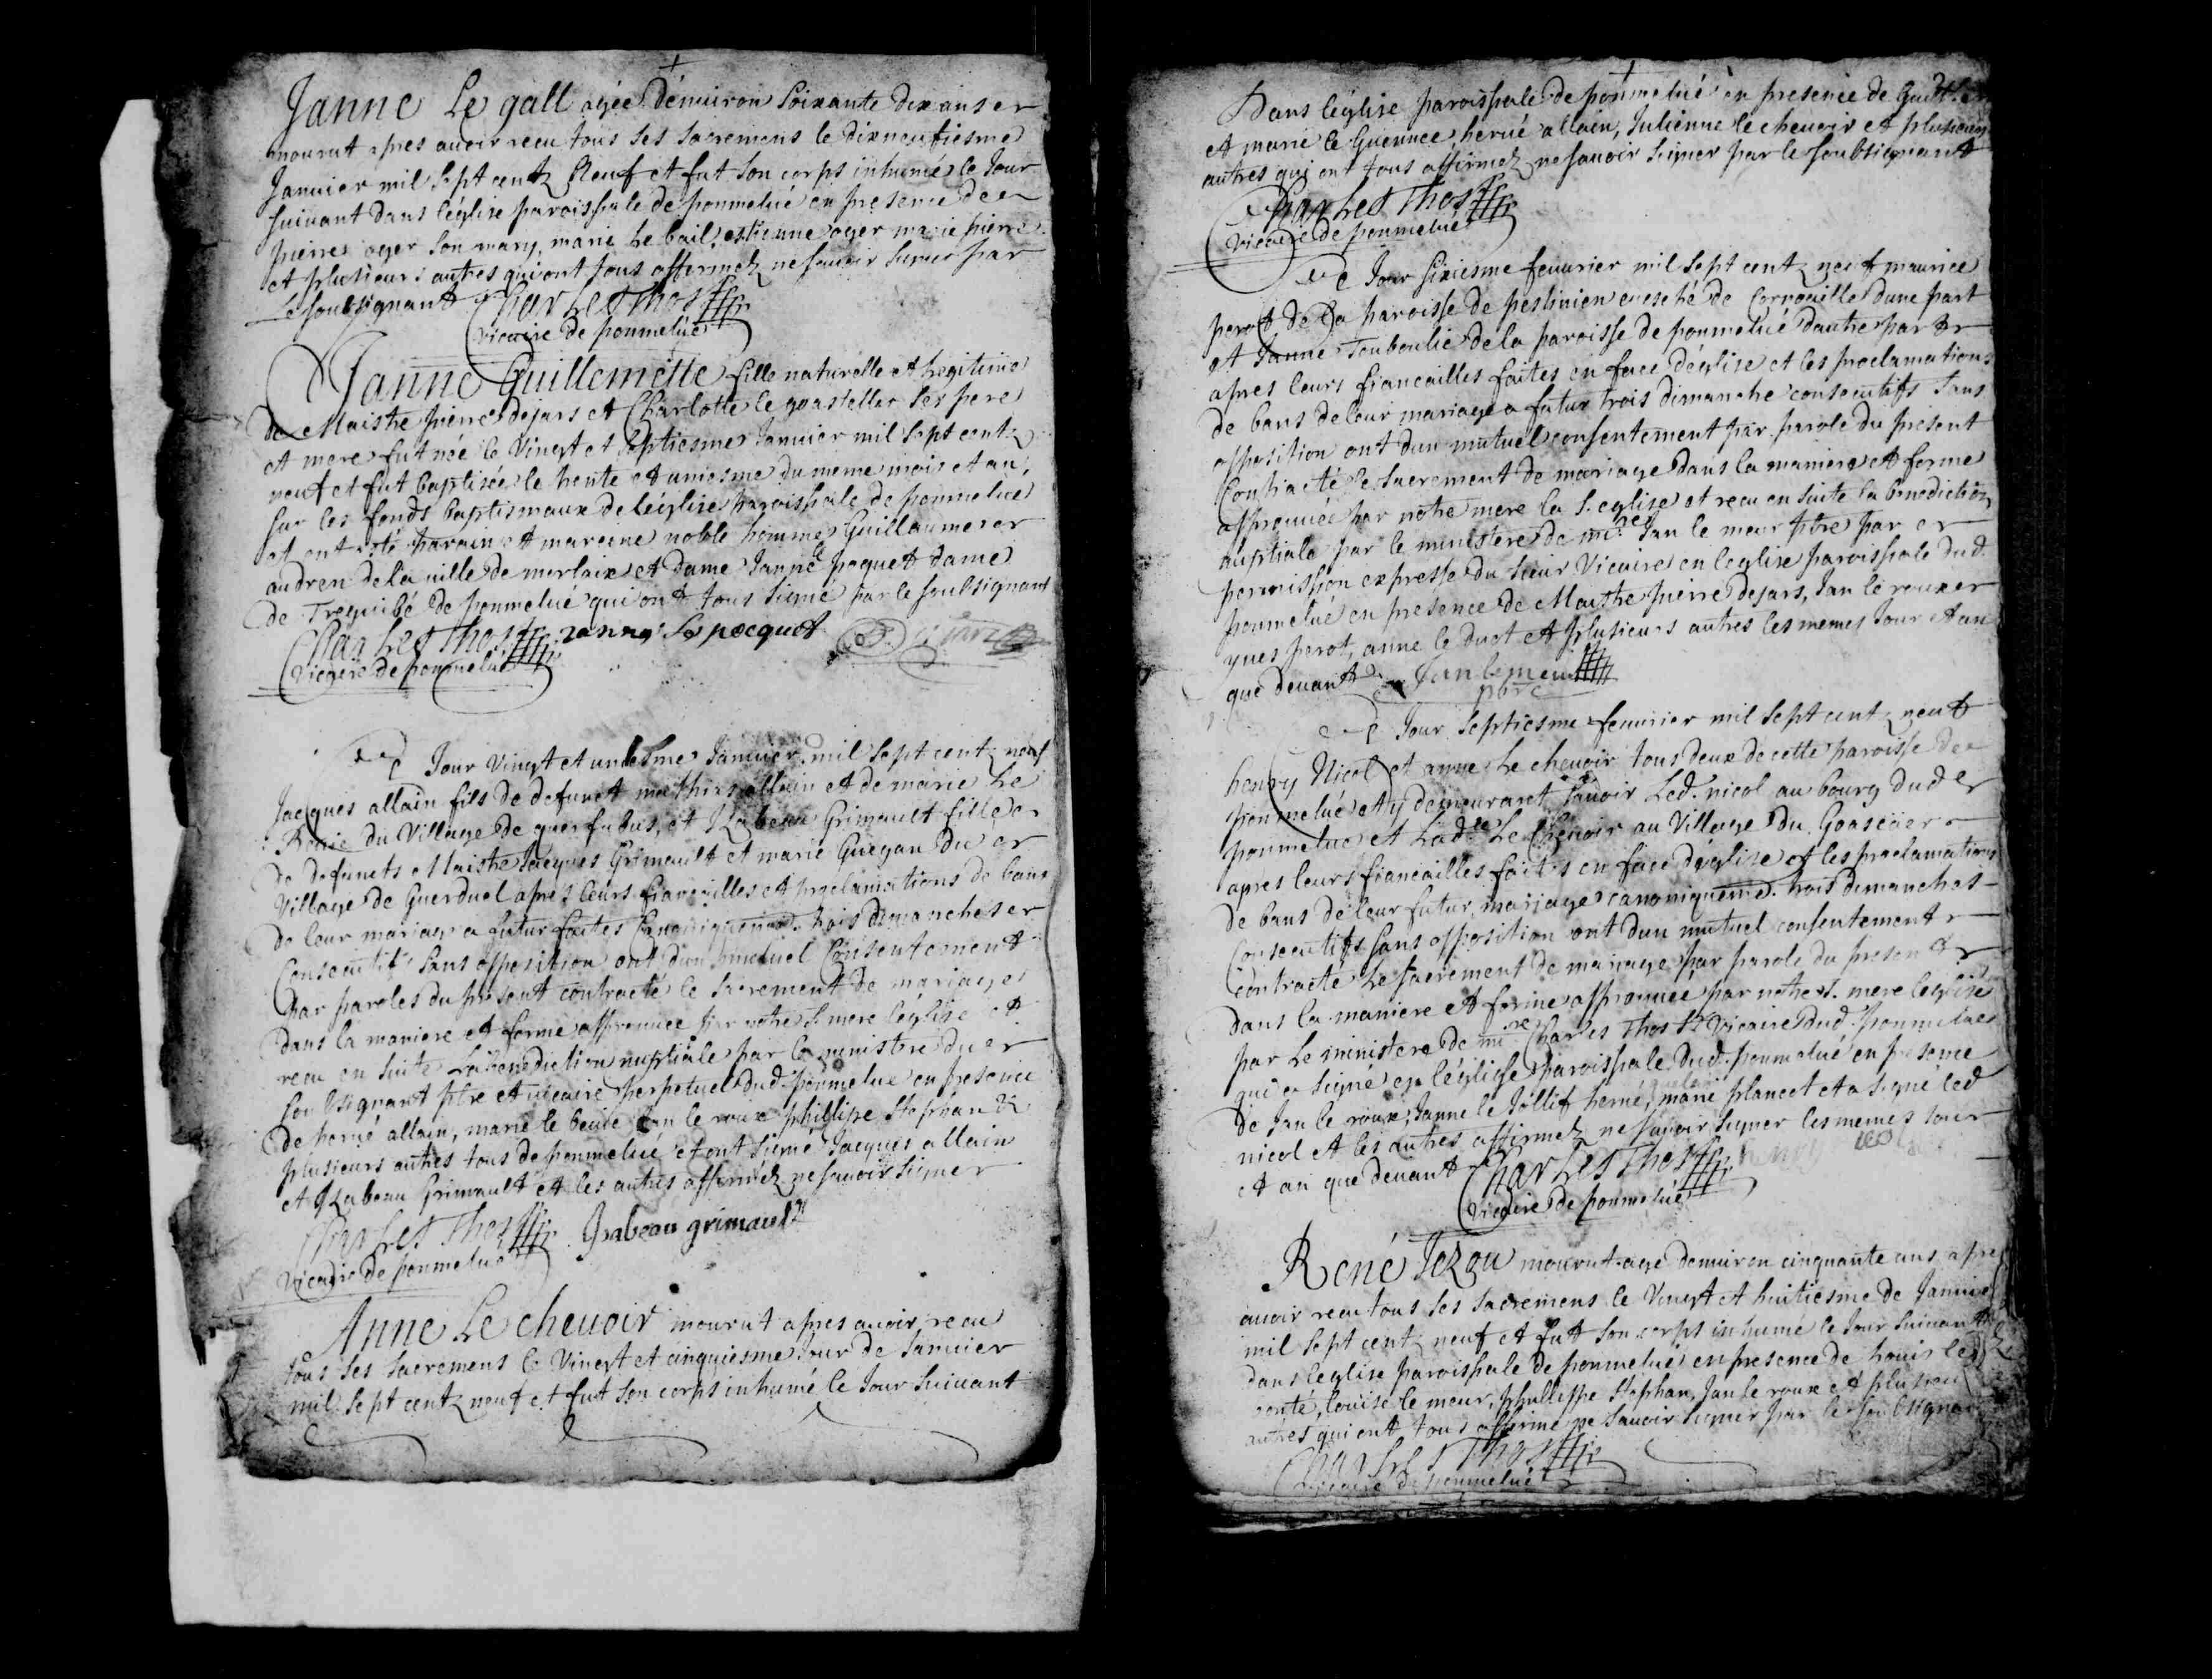 Janne Le gall agée denuiron Soixante dix ans
mourut apres auoir receu tous ses sacremens le dixneufiesme
Januier mil sept centz Neuf et fut son corps inhumé le Jour
suiuant dans léglise paroissiale de poumelué en presence de
pierre oger son mary, marie le bail, estienne oger marie pierre
et plusieurs autres qui ont tous affirmez ne sauoir signer par
Le soubsignant Charles Thos
vicaire de poumelué
Janne Guillemette fille naturelle et Legitime
de Maistre pierre dejars et Charlotte le goasteller ses pere
et mere fut née le Vingt et septiesme Januier mil sept centz
neuf et fut baptisée le trente et uniesme du meme mois et an,
sur les fonds baptismaux de léglise paroissiale de poumelué
et ont esté parain et maraine noble homme Guillaume
audren de la uille de morlaix et dame Janne poquet dame
de Treguibé de poumelué qui ont tous signé par le soubsignant
Charles Thos Janne Le pocquet
Vicaire de poumelué
Ce Jour Vingt et uniesme Januier mil sept centz neuf
Jacques allain fils de defunct mathias allain et de marie Le
du Village de querfubus, et Izabeau Grimault fille
de defuncts Maistre Jacques Grimault et marie Guegan du
Village de Guerduel apres leurs fiancailles et proclamations de bans
de leur mariage a futur faites Canoniquemt. trois dimanches
Consecutifs sans opposition ont d'un mutuel Consentement
par paroles du présent contracté le sacrement de mariage
dans la maniere et forme approuuée par notre S. mere léglise et
receu en suite La benediction nuptiale par le ministre du
soubsignant ptre et uicaire perpetuel dud. poumelué en presence
de herué allain, marie le beuile Jan le roux phillipe Stephan &
plusieurs autres tous de poumelué et ont signé Jacques allain
et Izabeau Grimault et les autres affirméz ne sauoir signer
Charles Thos Jzabeau grimault
Vicaire de poumelué
Anne Le cheuoir mourut apres auoir receu
tous ses sacremens le Vingt et cinquiesme Jour de Januier
mil sept centz neuf et fut son corps inhumé le Jour suiuant
Dans léglise paroissiale de poumelué en presence de
et marie le Guennec, herué allain, Julienne le cheuoir et plusieurs
autres qui ont tous affirmez ne sauoir signer par le soubsignant
Charles Thos
Vicaire de poumelué
Ce Jour sixiesme feburier mil sept centz neuf maurice
perot de La paroisse de pestiuien euesché de Cornouaille dune part
et Janne Touboulic de la paroisse de poumelué dautre part
apres leurs fiancailles faites en face déglise et les proclamations
de bans de leur mariage a futur trois dimanche consecutifs sans
opposition ont dun mutuel consentement par parole du présent
Contracté le sacrement de mariage dans la maniere et forme
approuuée par notre mere la S. eglise et receu en suite la benediction
nuptiale par le ministere de mire. Jan le meur ptre par
permission expresse du sieur Vicaire en leglise paroissiale dud.
poumelué en présence de Maistre pierre dejars, Jan le roux
yues perot, anne le duot et plusieurs autres les memes Jour et an
que deuant Jan le meur
pbre
Ce Jour septiesme feuurier mil sept centz neuf
henry Nicol et anne Le cheuoir tous deux de cette paroisse de
poumelué et y demeurant sauoir Led. nicol au bourg dud
poumelué et Ladte. Le Cheuoir au Village du Goascüer
apres leurs fiancailles faites en face déglise et les proclamations
de bans de leur futur mariage canoniquemt. trois dimanches
Consecutifs sans opposition ont dun mutuel consentement
contracté Le sacrement de mariage par parole du present
dans la maniere et forme approuuée par notre S. mere léglise
par Le ministere de mire Charles Thos Vicaire dud. poumelué
qui a signé en léglise paroissiale dud. poumelué en presence
de Jan le roux, Janne le Jollif herué, marie plancot et a signé led
nicol et les autres affirmez ne sauoir signer les memes Jour
et an que deuant Charles Thos
Vicaire de poumelué
René Jezou mourut agé denuiron cinquante ans apres
auoir receu tous ses sacremens le Vingt et huitiesme de Januier
mil sept centz neuf et fut son corps inhumé le Jour suiuant
dans leglise paroissiale de poumelué en presence de Louis le
conté, louise le meur, phillippe Stephan, Jan le roux et plusieurs
autres qui ont tous affirmé ne sauoir signer par le soubsignant
Charles Thos
Vicaire de poumelué